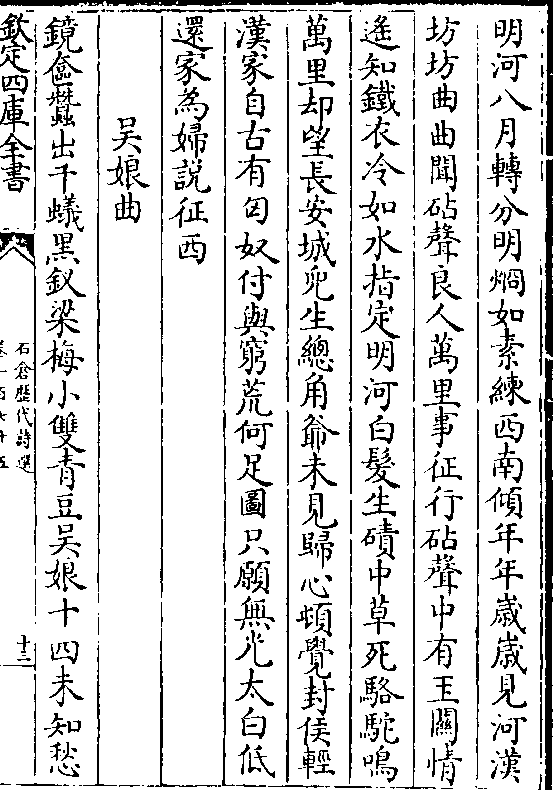 明河八月轉分明烱如素練西南傾年年歲歲見河漢
坊坊曲曲聞砧聲良人萬里事征行砧聲中有玉關情
遙知鐵衣冷如水指定明河白髮生磧中草死駱駝鳴
萬里却望長安城兒生總角爺未見歸心頓覺封侯輕
漢家自古有匈奴付與窮荒何足圖只願無光太白低
還家為婦説征西
吳娘曲
鏡奩蠶出千蟻黑釵梁梅小雙青豆吳娘十四未知愁
欽定四庫全書
石倉歷代詩選
十三